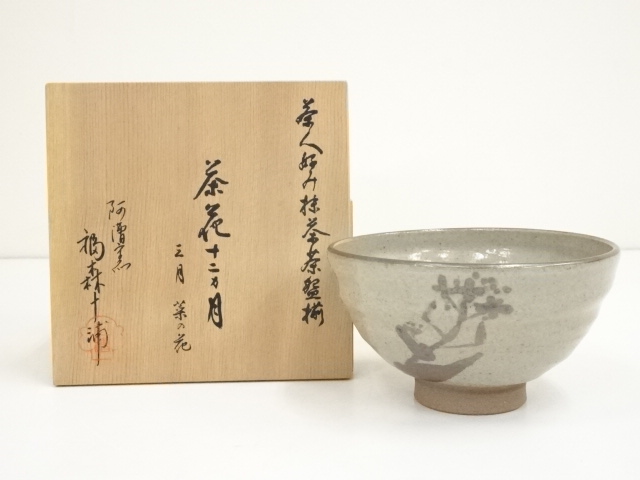 茶人好み抹茶茶盌揃
茶花十二ヵ月
三月 菜の花
阿漕窯
福森十浦